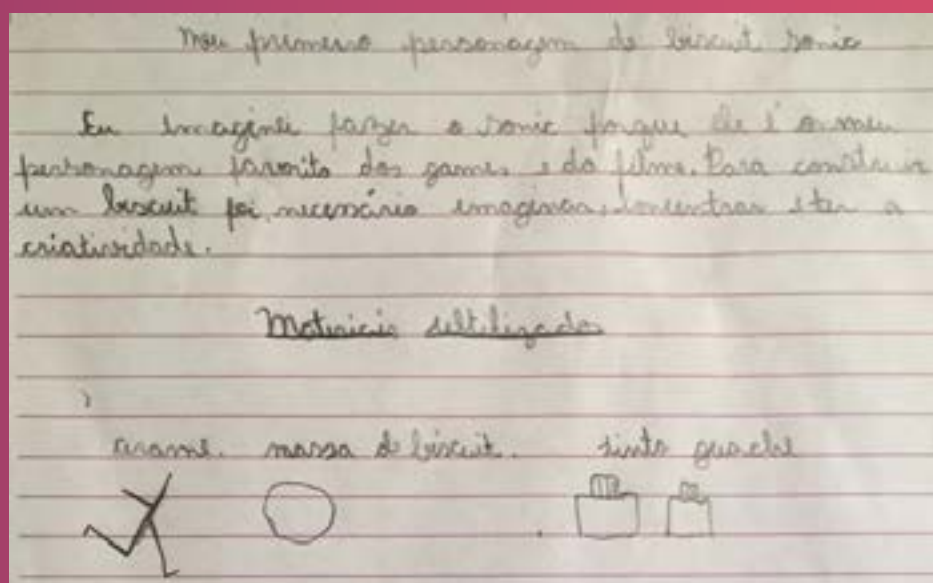 Meu primeiro personagem de biscuit sonic
Eu imaginei fazer o sonic porque ele é o meu
personagem favorito dos games e do filme. Para construir
um biscuit foi necessário imaginar, concentrar e ter a
criatividade.
Materiais
arame. massa de biscuit. tinta guache